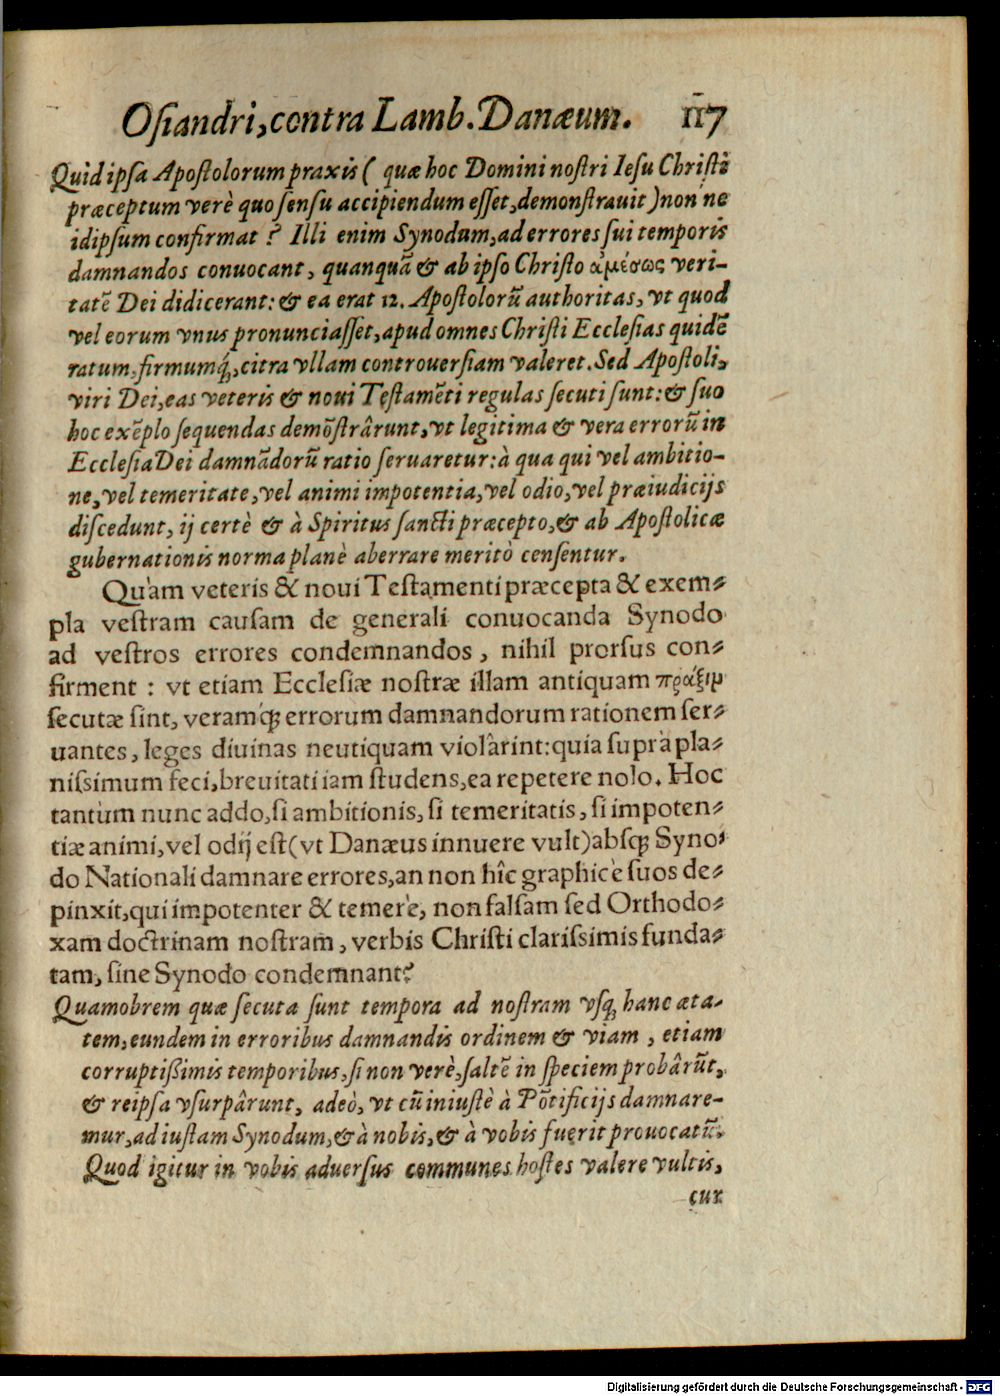 Oſiandri, contra Lamb. Danæum. 117
Quid ipſa Apoſtolorum praxis ( quæ hoc Domini noſtri Ieſu Chriſti
præceptum verè quo ſenſu accipiendum eſſet, demonſtrauit ) non ne
idipſum confirmat ? Illi enim Synodum, ad errores ſui temporis
damnandos conuocant, quanquā & ab ipſo Chriſto ἀμέσως veri-
tatē Dei didicerant: & ea erat 12. Apoſtolorū authoritas, vt quod
vel eorum vnus pronunciaſſet, apud omnes Chriſti Eccleſias quidē
ratum, firmumq́;, citra vllam controuerſiam valeret. Sed Apoſtoli,
viri Dei, eas veteris & noui Teſtamēti regulas ſecuti ſunt: & ſuo
hoc exēplo ſequendas demōſtrârunt, vt legitima & vera errorū in
Eccleſia Dei damnādorū ratio ſeruaretur: à qua qui vel ambitio-
ne, vel temeritate, vel animi impotentia, vel odio, vel præiudicijs
diſcedunt, ij certè & à Spiritus ſancti præcepto, & ab Apoſtolicæ
gubernationis norma planè aberrare meritò cenſentur.
Quàm veteris & noui Teſtamenti præcepta & exem-
pla veſtram cauſam de generali conuocanda Synodo
ad veſtros errores condemnandos, nihil prorſus con-
firment : vt etiam Eccleſiæ noſtræ illam antiquam πρᾶξιμ
ſecutæ ſint, veramq́; errorum damnandorum rationem ſer-
uantes, leges diuinas neutiquam violârint: quia ſuprà pla-
niſsimum feci, breuitati iam ſtudens, ea repetere nolo. Hoc
tantùm nunc addo, ſi ambitionis, ſi temeritatis, ſi impoten-
tiæ animi, vel odij eſt (vt Danæus innuere vult) abſq; Syno-
do Nationali damnare errores, an non hîc graphicè ſuos de-
pinxit, qui impotenter & temerè, non falſam ſed Orthodo-
xam doctrinam noſtram, verbis Chriſti clariſsimis funda-
tam, ſine Synodo condemnant?
Quamobrem quæ ſecuta ſunt tempora ad noſtram vſq; hanc æta-
tem, eundem in erroribus damnandis ordinem & viam, etiam
corruptiſſimis temporibus, ſi non verè, ſaltē in ſpeciem probârūt,
& reipſa vſurpârunt, adeò, vt cū iniuſtè à Pōtificijs damnare-
mur, ad iuſtam Synodum, & à nobis, & à vobis fuerit prouocatū.
Quod igitur in vobis aduerſus communes hoſtes valere vultis,
cur
Digitalisierung gefördert durch die Deutsche Forschungsgemeinschaft - DFG